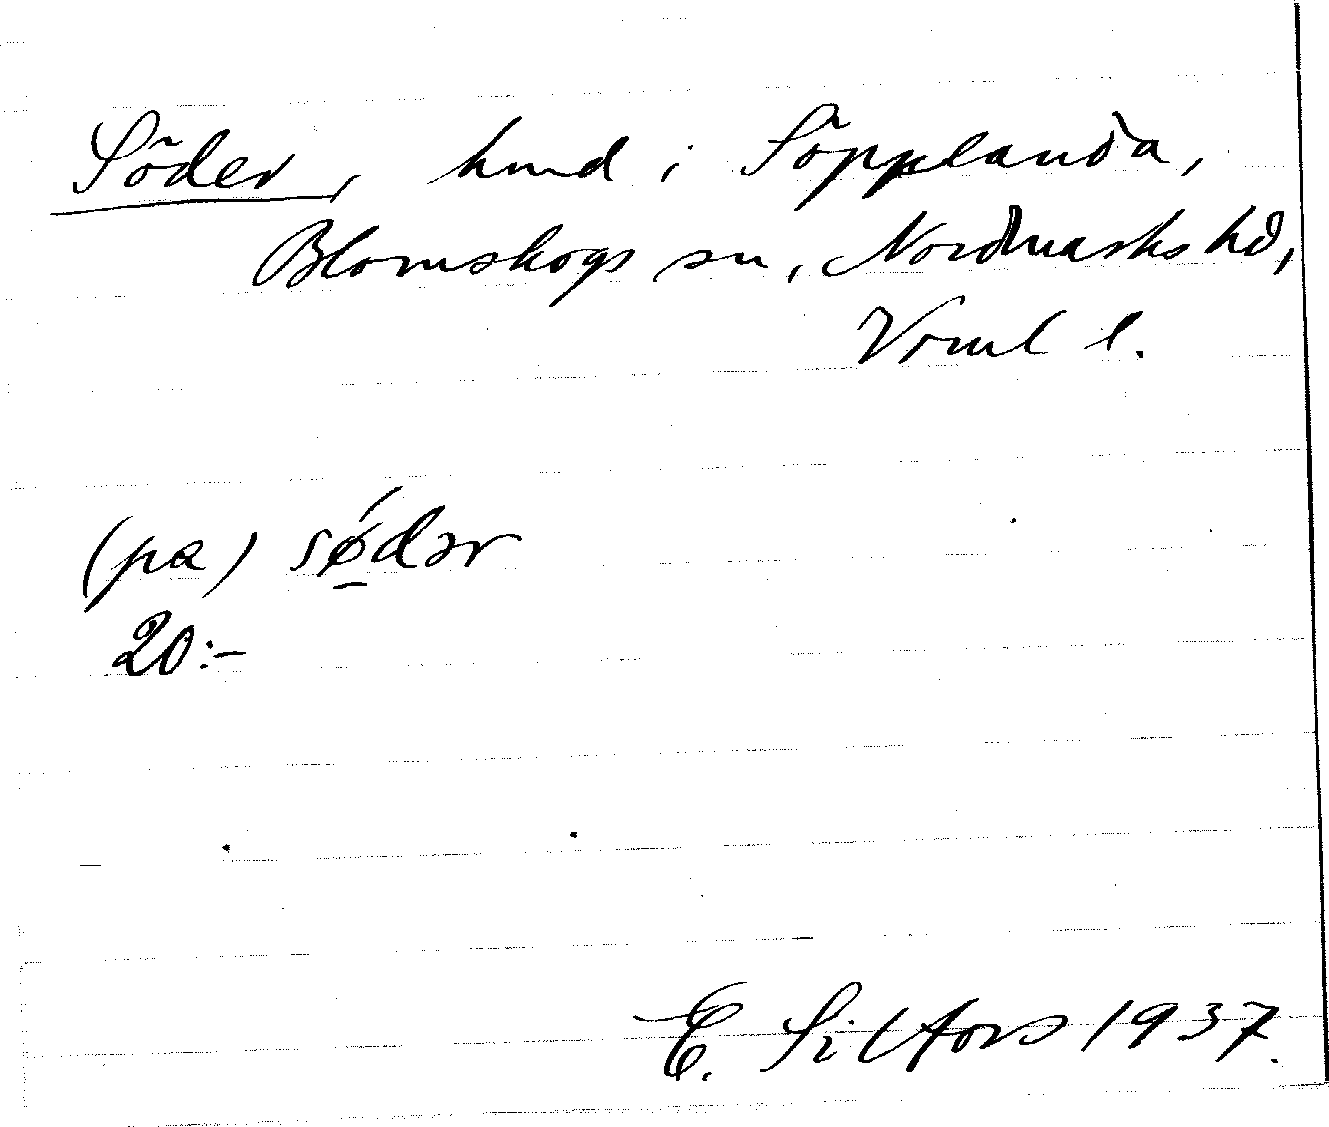 Söder, hmd i Söpplanda,
Blomskogs sn, Nordmarks hd,
Vrml l.
(pa) sǿ̱dər
20:-
E. Silfors 1937.